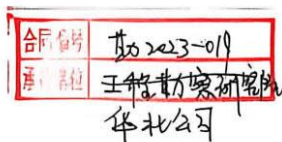 合同编号 勘2023-019
承 单位 工程勘察研究院
华北公司